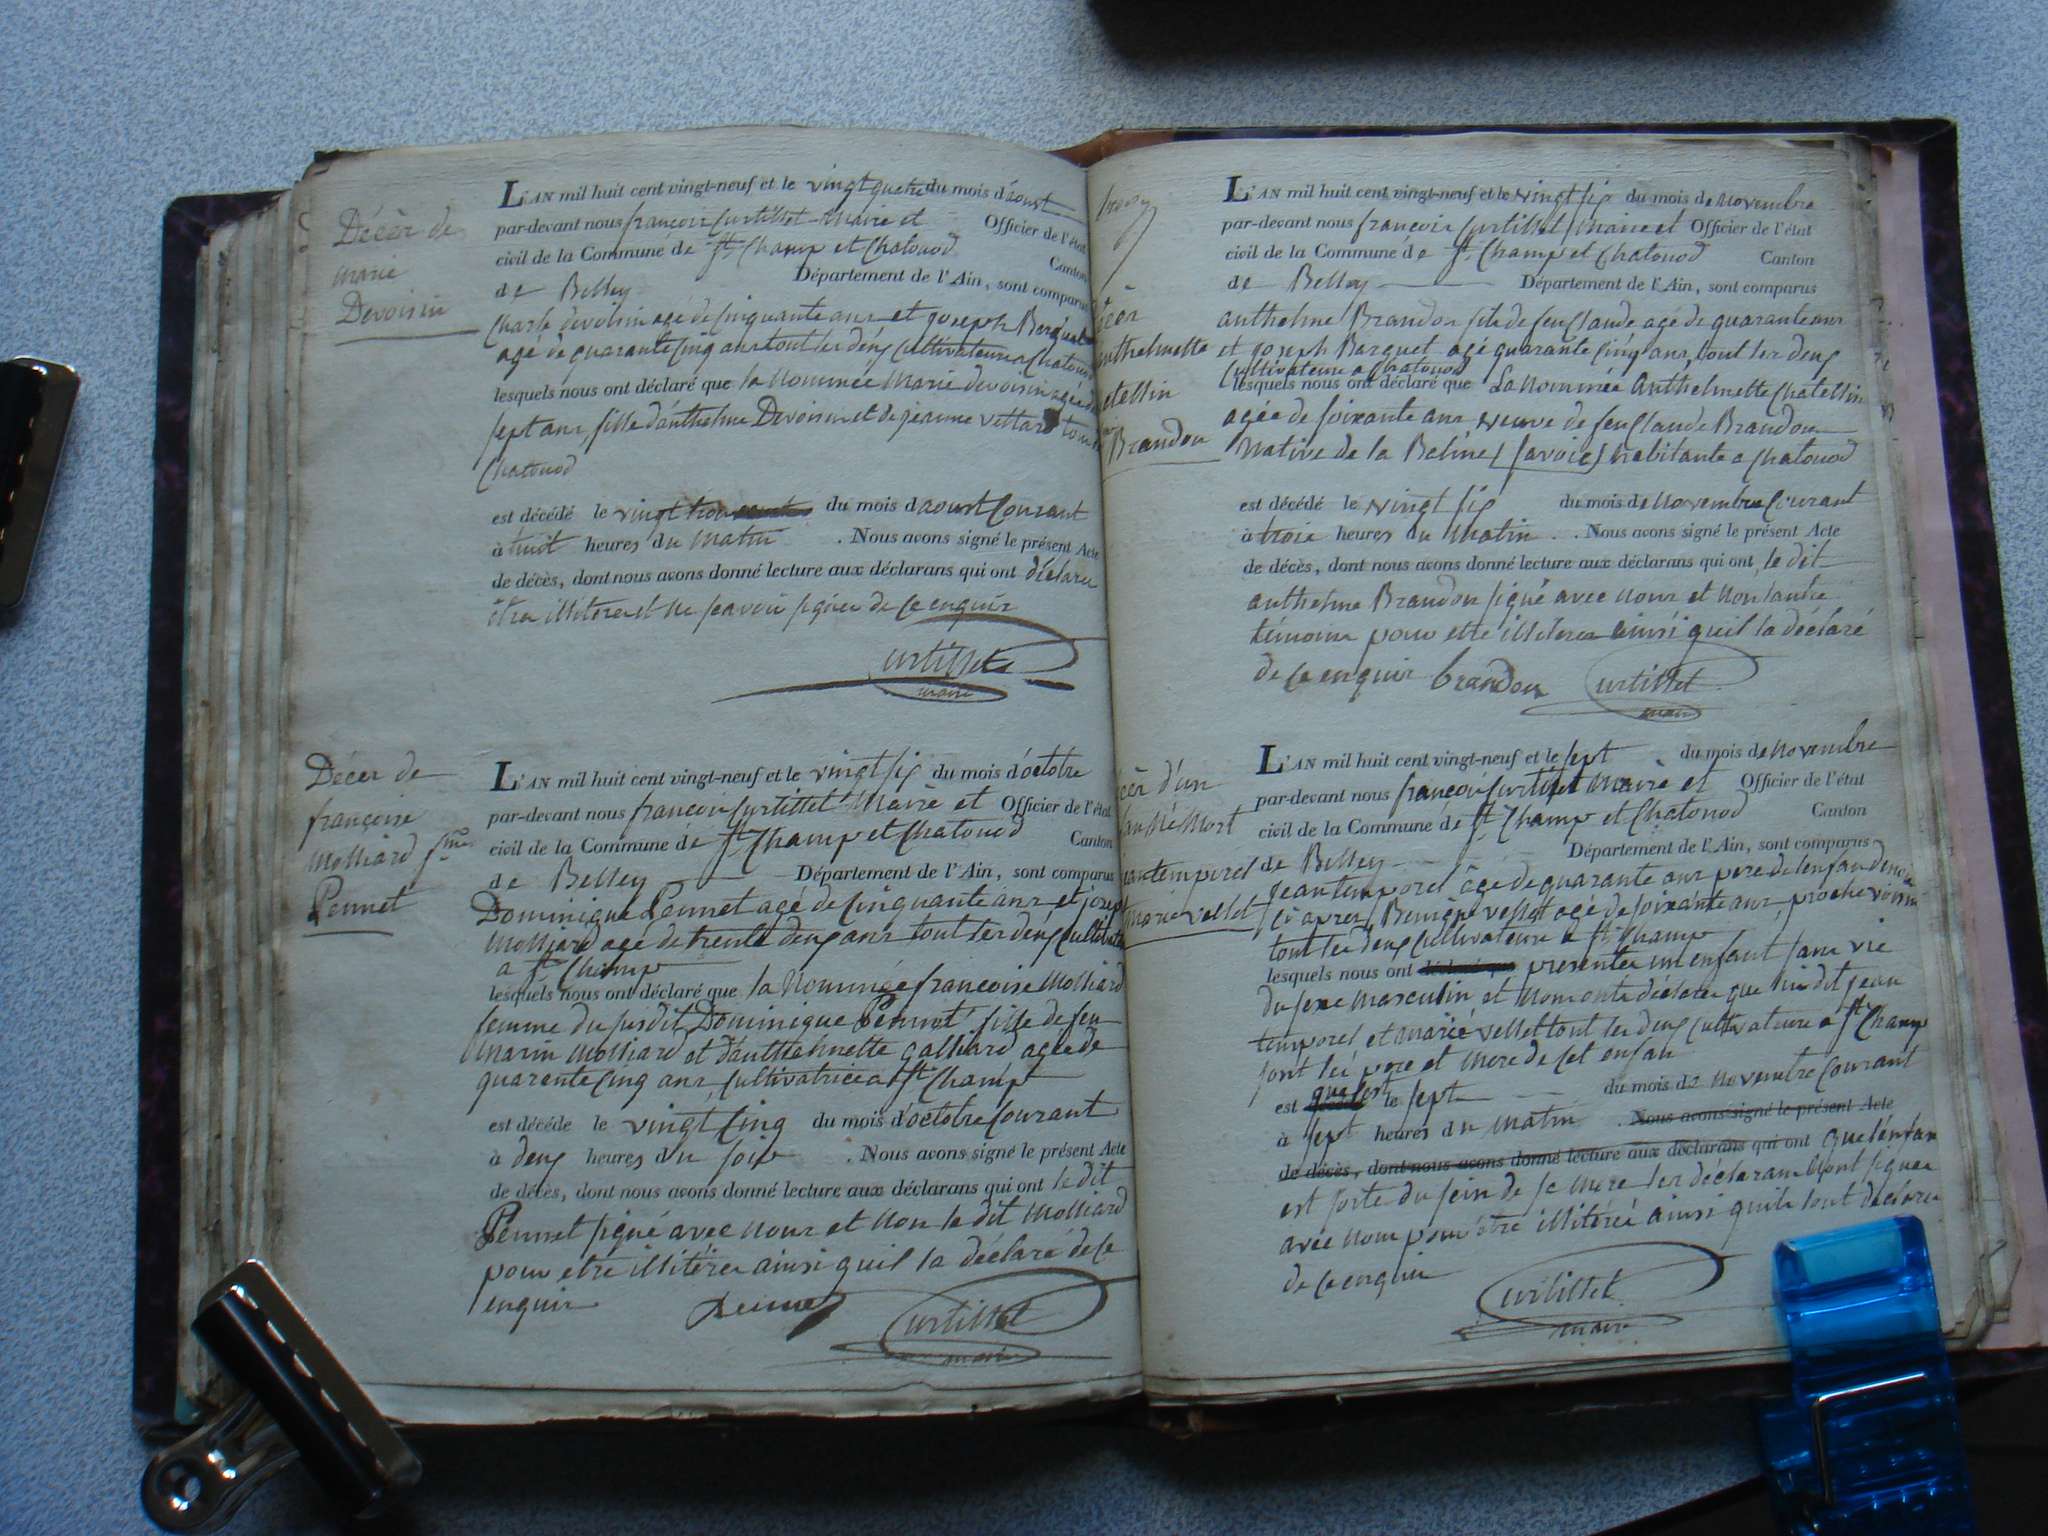 Décès de
marie
Devoisin
L'AN mil huit cent vingt-neuf et le vingt quatre du mois d'aoust
par-devant nous françois Curtillet Maire et Officier de l'état
civil de la Commune de St Champ et Chatonod Canton
de Belley Département de l'Ain, sont comparus
Charle devoisin agé de cinquante ans et joseph Barquet
agé de quarante cinq ans tout les deux cultivateurs a Chatonod
lesquels nous ont déclaré que la nommée Marie devoisin agée de
sept ans, fille d'anthelme Devoisin et de jeanne vettard
Chatonod
est décédé le vingt trois du mois d aoust Courant
à huit heures du matin . Nous avons signé le présent Acte
de décès, dont nous avons donné lecture aux déclarans qui ont déclaré
être illiterer et ne scavoir signer de ce enquir
Curtillet
maire
Décès de
françoise
Molliard fme
Pennet
L'AN mil huit cent vingt-neuf et le vingt six du mois d'octobre
par-devant nous françois Curtillet Maire et Officier de l'état
civil de la Commune de St Champ et Chatonod Canton
de Belley Département de l'Ain, sont comparus
Dominique Pennet agé de cinquante ans et joseph
Molliard agé de trente deux ans tout les deux cultivateurs
a St Champ
lesquels nous ont déclaré que la Nommée françoise Molliard
femme du susdit Dominique Pennet fille de feu
Marin Molliard et d'anthelmette galliard agée de
quarante cinq ans cultivatrice a St Champ
est décédé le vingt cinq du mois d'octobre Courant
à deux heures du soir . Nous avons signé le présent Acte
de décès, dont nous avons donné lecture aux déclarans qui ont le dit
Pennet signé avec nous et non le dit Molliard
pour etre illitérer ainsi quil la déclaré de ce
enquir
Curtillet
maire
anthelmette
Brandon
L'AN mil huit cent vingt-neuf et le vingt six du mois de novembre
par-devant nous françois Curtillet Maire et Officier de l'état
civil de la Commune de St Champ et Chatonod Canton
de Belley Département de l'Ain, sont comparus
anthelme Brandon fils de feu Claude agé de quarante ans
et joseph Barquet agé quarante cinq ans, tout les deux
Cultivateurs a Chatonod
lesquels nous ont déclaré que La Nommée Anthelmette Chatellin
agée de soixante ans veuve de feu Claude Brandon
Native de la Balme (Savoie) habitante a Chatonod
est décédé le vingt six du mois de Novembre Courant
à trois heures du Matin . Nous avons signé le présent Acte
de décès, dont nous avons donné lecture aux déclarans qui ont le dit
anthelme Brandon signé avec nous et non lautre
témoins pour etre illiterer ainsi quil la déclaré
de ce enquir brandon Curtillet
maire
d'un
Mort
jean temporel
Marie vellet
L'AN mil huit cent vingt-neuf et le sept du mois de Novembre
par-devant nous françois Curtillet Maire et Officier de l'état
civil de la Commune de St Champ et Chatonod Canton
de Belley Département de l'Ain, sont comparus
Jean temporel âgé de quarante ans pere de lenfan
ci apres, Benigne vellet agé de soixante ans, proche voisin
tout les deux cultivateurs a St Champ
lesquels nous ont déclaré que presenter un enfant sans vie
du sexe masculin et nous ont déclarer que lui dit jean
temporel et marie vellet tout les deux cultivateurs a St Champ
sont les pere et mere de cet enfan
est que cest le sept du mois de Novembre Courant
à sept heures du matin . Nous avons signé le présent Acte
de décès, dont nous avons donné lecture aux déclarans qui ont que lenfan
est sorte du sein de sa mere les déclarans nont signer
avec nous pour être illiteré ainsi quils lont déclaré
de ce enquir
Curtillet
maire